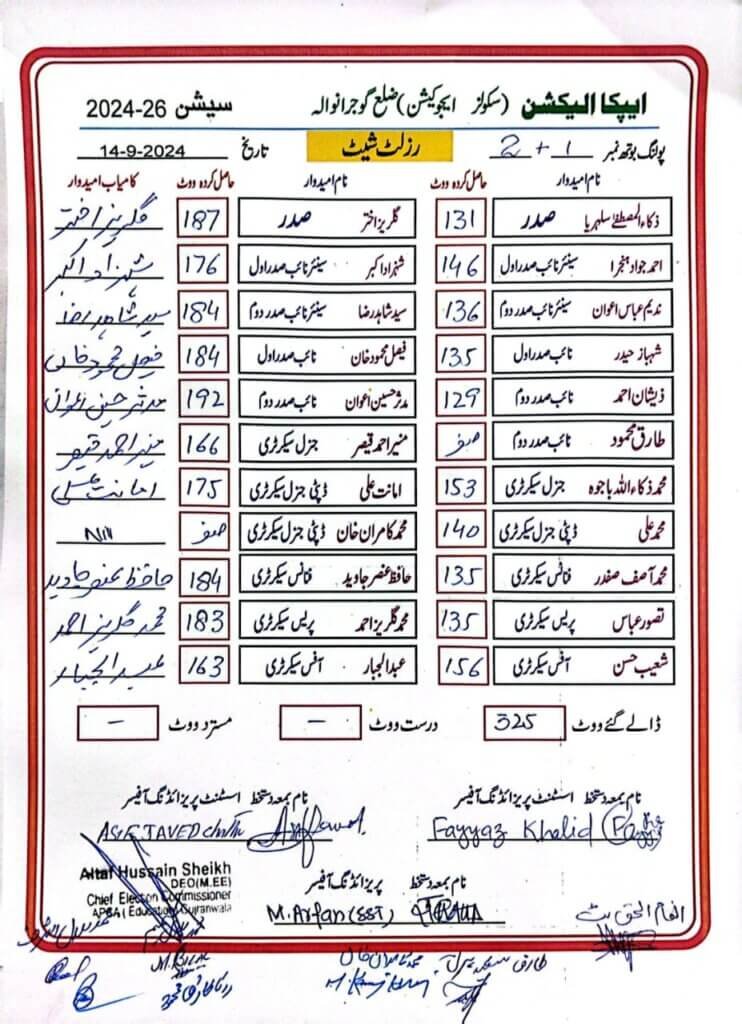 ایپکا الیکشن (سکولز ایجوکیشن) ضلع گوجرانوالہ سیشن 2024-26
پولنگ بوتھ نمبر 1 + 2 رزلٹ شیٹ تاریخ 14-9-2024
نام امیدوار حاصل کردہ ووٹ نام امیدوار حاصل کردہ ووٹ کامیاب امیدوار
ذکاء المصطفےٰ سلہریا صدر 131 گلریز اختر صدر 187 گلریز اختر
احمد جواد ہنجرا سینئر نائب صدر اول 146 شہزاد اکبر سینئر نائب صدر اول 176 شہزاد اکبر
ندیم عباس اعوان سینئر نائب صدر دوم 136 سید شاہد رضا سینئر نائب صدر دوم 184 سید شاہد رضا
شہباز حیدر نائب صدر اول 135 فیصل محمود خان نائب صدر اول 184 فیصل محمود خان
ذیشان احمد نائب صدر دوم 129 مدثر حسین اعوان نائب صدر دوم 192 مدثر حسین اعوان
طارق محمود نائب صدر دوم صفر منیر احمد قیصر جنرل سیکرٹری 166 منیر احمد قیصر
محمد ذکاء اللہ باجوہ جنرل سیکرٹری 153 امانت علی ڈپٹی جنرل سیکرٹری 175 امانت علی
محمد علی ڈپٹی جنرل سیکرٹری 140 محمد کامران خان ڈپٹی جنرل سیکرٹری صفر Nill
محمد آصف صفدر فنانس سیکرٹری 135 حافظ عنصر جاوید فنانس سیکرٹری 184 حافظ عنصر جاوید
تصور عباس پریس سیکرٹری 135 محمد گلریز احمد پریس سیکرٹری 183 محمد گلریز احمد
شعیب حسن آفس سیکرٹری 156 عبدالجبار آفس سیکرٹری 163 عبدالجبار
ڈالے گئے ووٹ 325 درست ووٹ - مسترد ووٹ -
نام بمعہ دستخط اسسٹنٹ پریزائڈنگ آفیسر نام بمعہ دستخط اسسٹنٹ پریزائڈنگ آفیسر
Fayyaz Khalid
ASIF JAVED
Altaf Hussain Sheikh
DEO(M.EE)
Chief Election Commissioner
APCA (Education) Gujranwala
نام بمعہ دستخط پریزائڈنگ آفیسر
M. Arfan (SST)
انعام الحق بٹ
محمد کامران خان